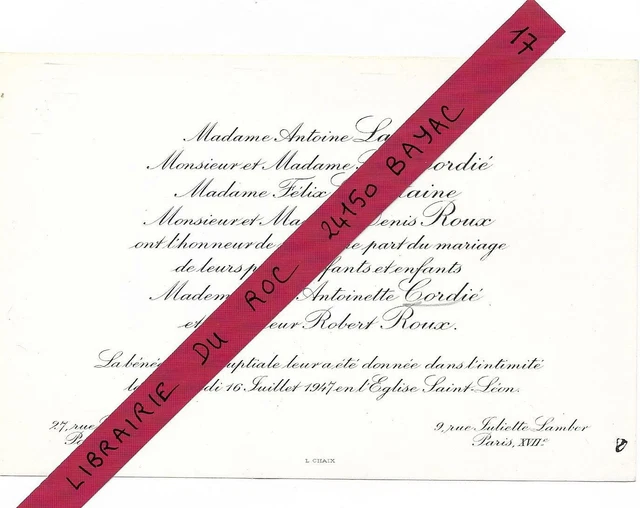 Madame Antoine La
Monsieur et Madame Cordié
Madame Félix aine
Monsieur et Ma Denis Roux
ont l'honneur de le part du mariage
de leurs p fants et enfants
Madem Antoinette Cordié
et eur Robert Roux.
La béné uptiale leur a été donnée dans l'intimité
di 16 Juillet 1947 en l'Eglise Saint-Léon.
27, rue
9, rue Juliette Lamber
Paris, XVIIe
L. CHAIX
LIBRAIRIE DU ROC 24150 BAYAC 17